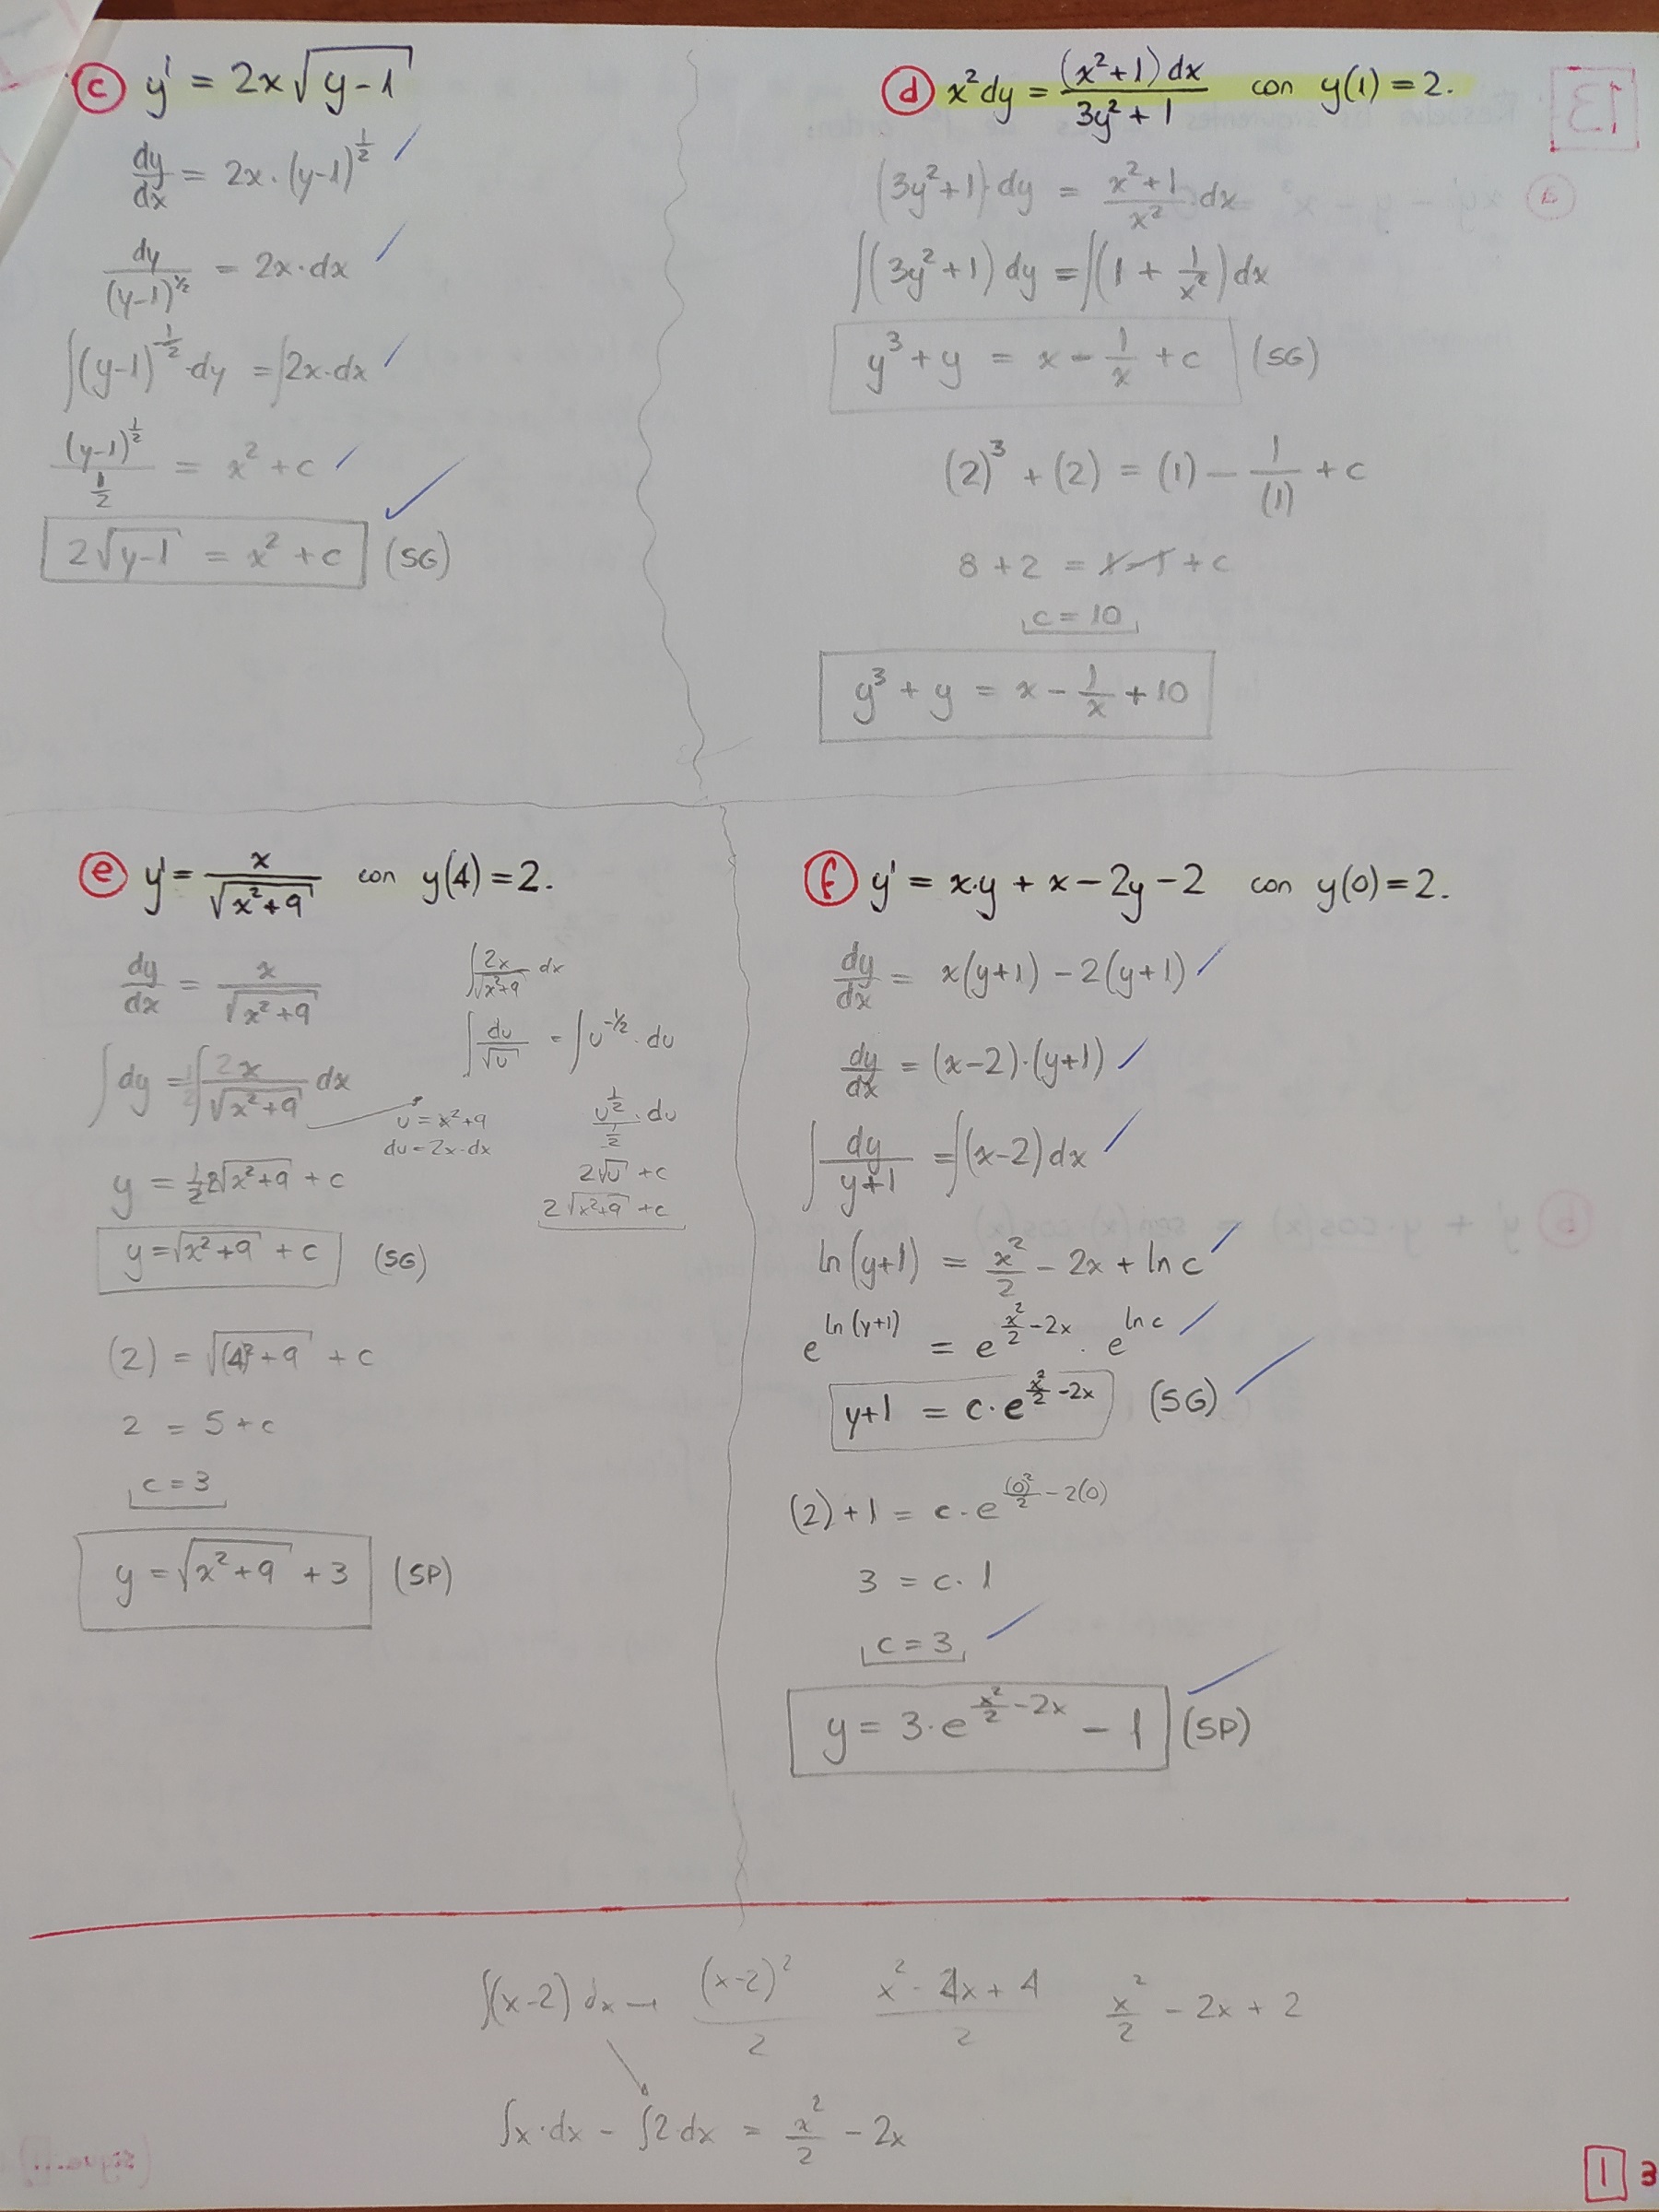 c y' = 2x√(y-1)
dy/dx = 2x·(y-1)^(1/2)
dy/(y-1)^(1/2) = 2x·dx
∫(y-1)^(-1/2)·dy = ∫2x·dx
(y-1)^(1/2)/(1/2) = x² + c
2√(y-1) = x² + c (SG)
d x²dy = (x²+1)dx/(3y²+1) con y(1)=2.
(3y²+1)·dy = (x²+1)/x² · dx
∫(3y²+1)dy = ∫(1 + 1/x²)dx
y³+y = x - 1/x + c (SG)
(2)³ + (2) = (1) - 1/(1) + c
8+2 = 1-1 + c
c = 10
y³ + y = x - 1/x + 10
e y' = x/√(x²+9) con y(4)=2.
dy/dx = x/√(x²+9)
∫dy = 1/2 ∫2x/√(x²+9) dx
u = x²+9
du = 2x·dx
y = 1/2 2√(x²+9) + c
y = √(x²+9) + c (SG)
(2) = √((4)²+9) + c
2 = 5+c
c = 3
y = √(x²+9) + 3 (SP)
∫2x/√(x²+9) dx
∫du/√u = ∫u^(-1/2)·du
u^(1/2)/(1/2) · du
2√u + c
2√(x²+9) + c
f y' = x·y + x - 2y - 2 con y(0)=2.
dy/dx = x(y+1) - 2(y+1)
dy/dx = (x-2)·(y+1)
∫dy/(y+1) = ∫(x-2)dx
ln(y+1) = x²/2 - 2x + ln c
e^(ln(y+1)) = e^(x²/2 - 2x) · e^(ln c)
y+1 = c·e^(x²/2 - 2x) (SG)
(2)+1 = c·e^((0)²/2 - 2(0))
3 = c·1
c = 3
y = 3·e^(x²/2 - 2x) - 1 (SP)
∫(x-2)dx → (x-2)²/2 (x² - 4x + 4)/2 x²/2 - 2x + 2
∫x·dx - ∫2·dx = x²/2 - 2x
1 3